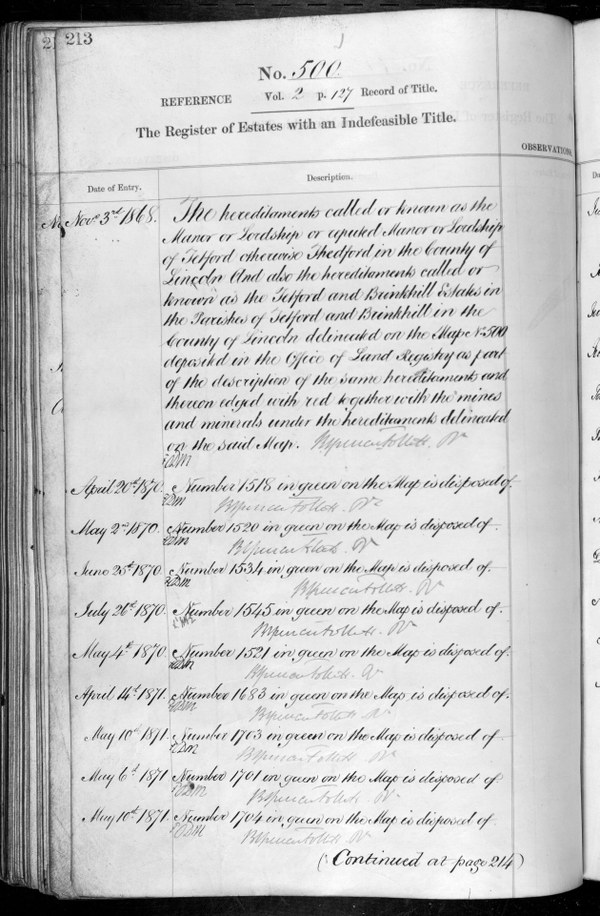 213
No. 500.
REFERENCE Vol. 2 p. 127 Record of Title.
The Register of Estates with an Indefeasible Title.
OBSERVATIONS
Date of Entry.
Description.
Novr. 3rd 1868.
The hereditaments called or known as the
Manor or Lordship or reputed Manor or Lordship
of Tetford otherwise Thedford in the County of
Lincoln And also the hereditaments called or
known as the Tetford and Brinkhill Estates in
the Parishes of Tetford and Brinkhill in the
County of Lincoln delineated on the Map No. 500
deposited in the Office of Land Registry as part
of the description of the same hereditaments and
thereon edged with red together with the mines
and minerals under the hereditaments delineated
on the said Map. BSpencer Follett. Rr
April 20th 1870. Number 1518 in green on the Map is disposed of.
BSpencer Follett. Rr
May 2nd 1870. Number 1520 in green on the Map is disposed of.
June 25th 1870. Number 1534 in green on the Map is disposed of.
BSpencer Follett. Rr
July 26th 1870. Number 1545 in green on the Map is disposed of.
BSpencer Follett. Rr
May 4th 1870. Number 1521 in green on the Map is disposed of.
BSpencer Follett. Rr
April 14th 1871. Number 1683 in green on the Map is disposed of.
BSpencer Follett Rr
May 10th 1871. Number 1703 in green on the Map is disposed of.
BSpencer Follett Rr
May 6th 1871 Number 1701 in green on the Map is disposed of
BSpencer Follett Rr
May 10th 1871. Number 1704 in green on the Map is disposed of.
BSpencer Follett Rr
(Continued at page 214)